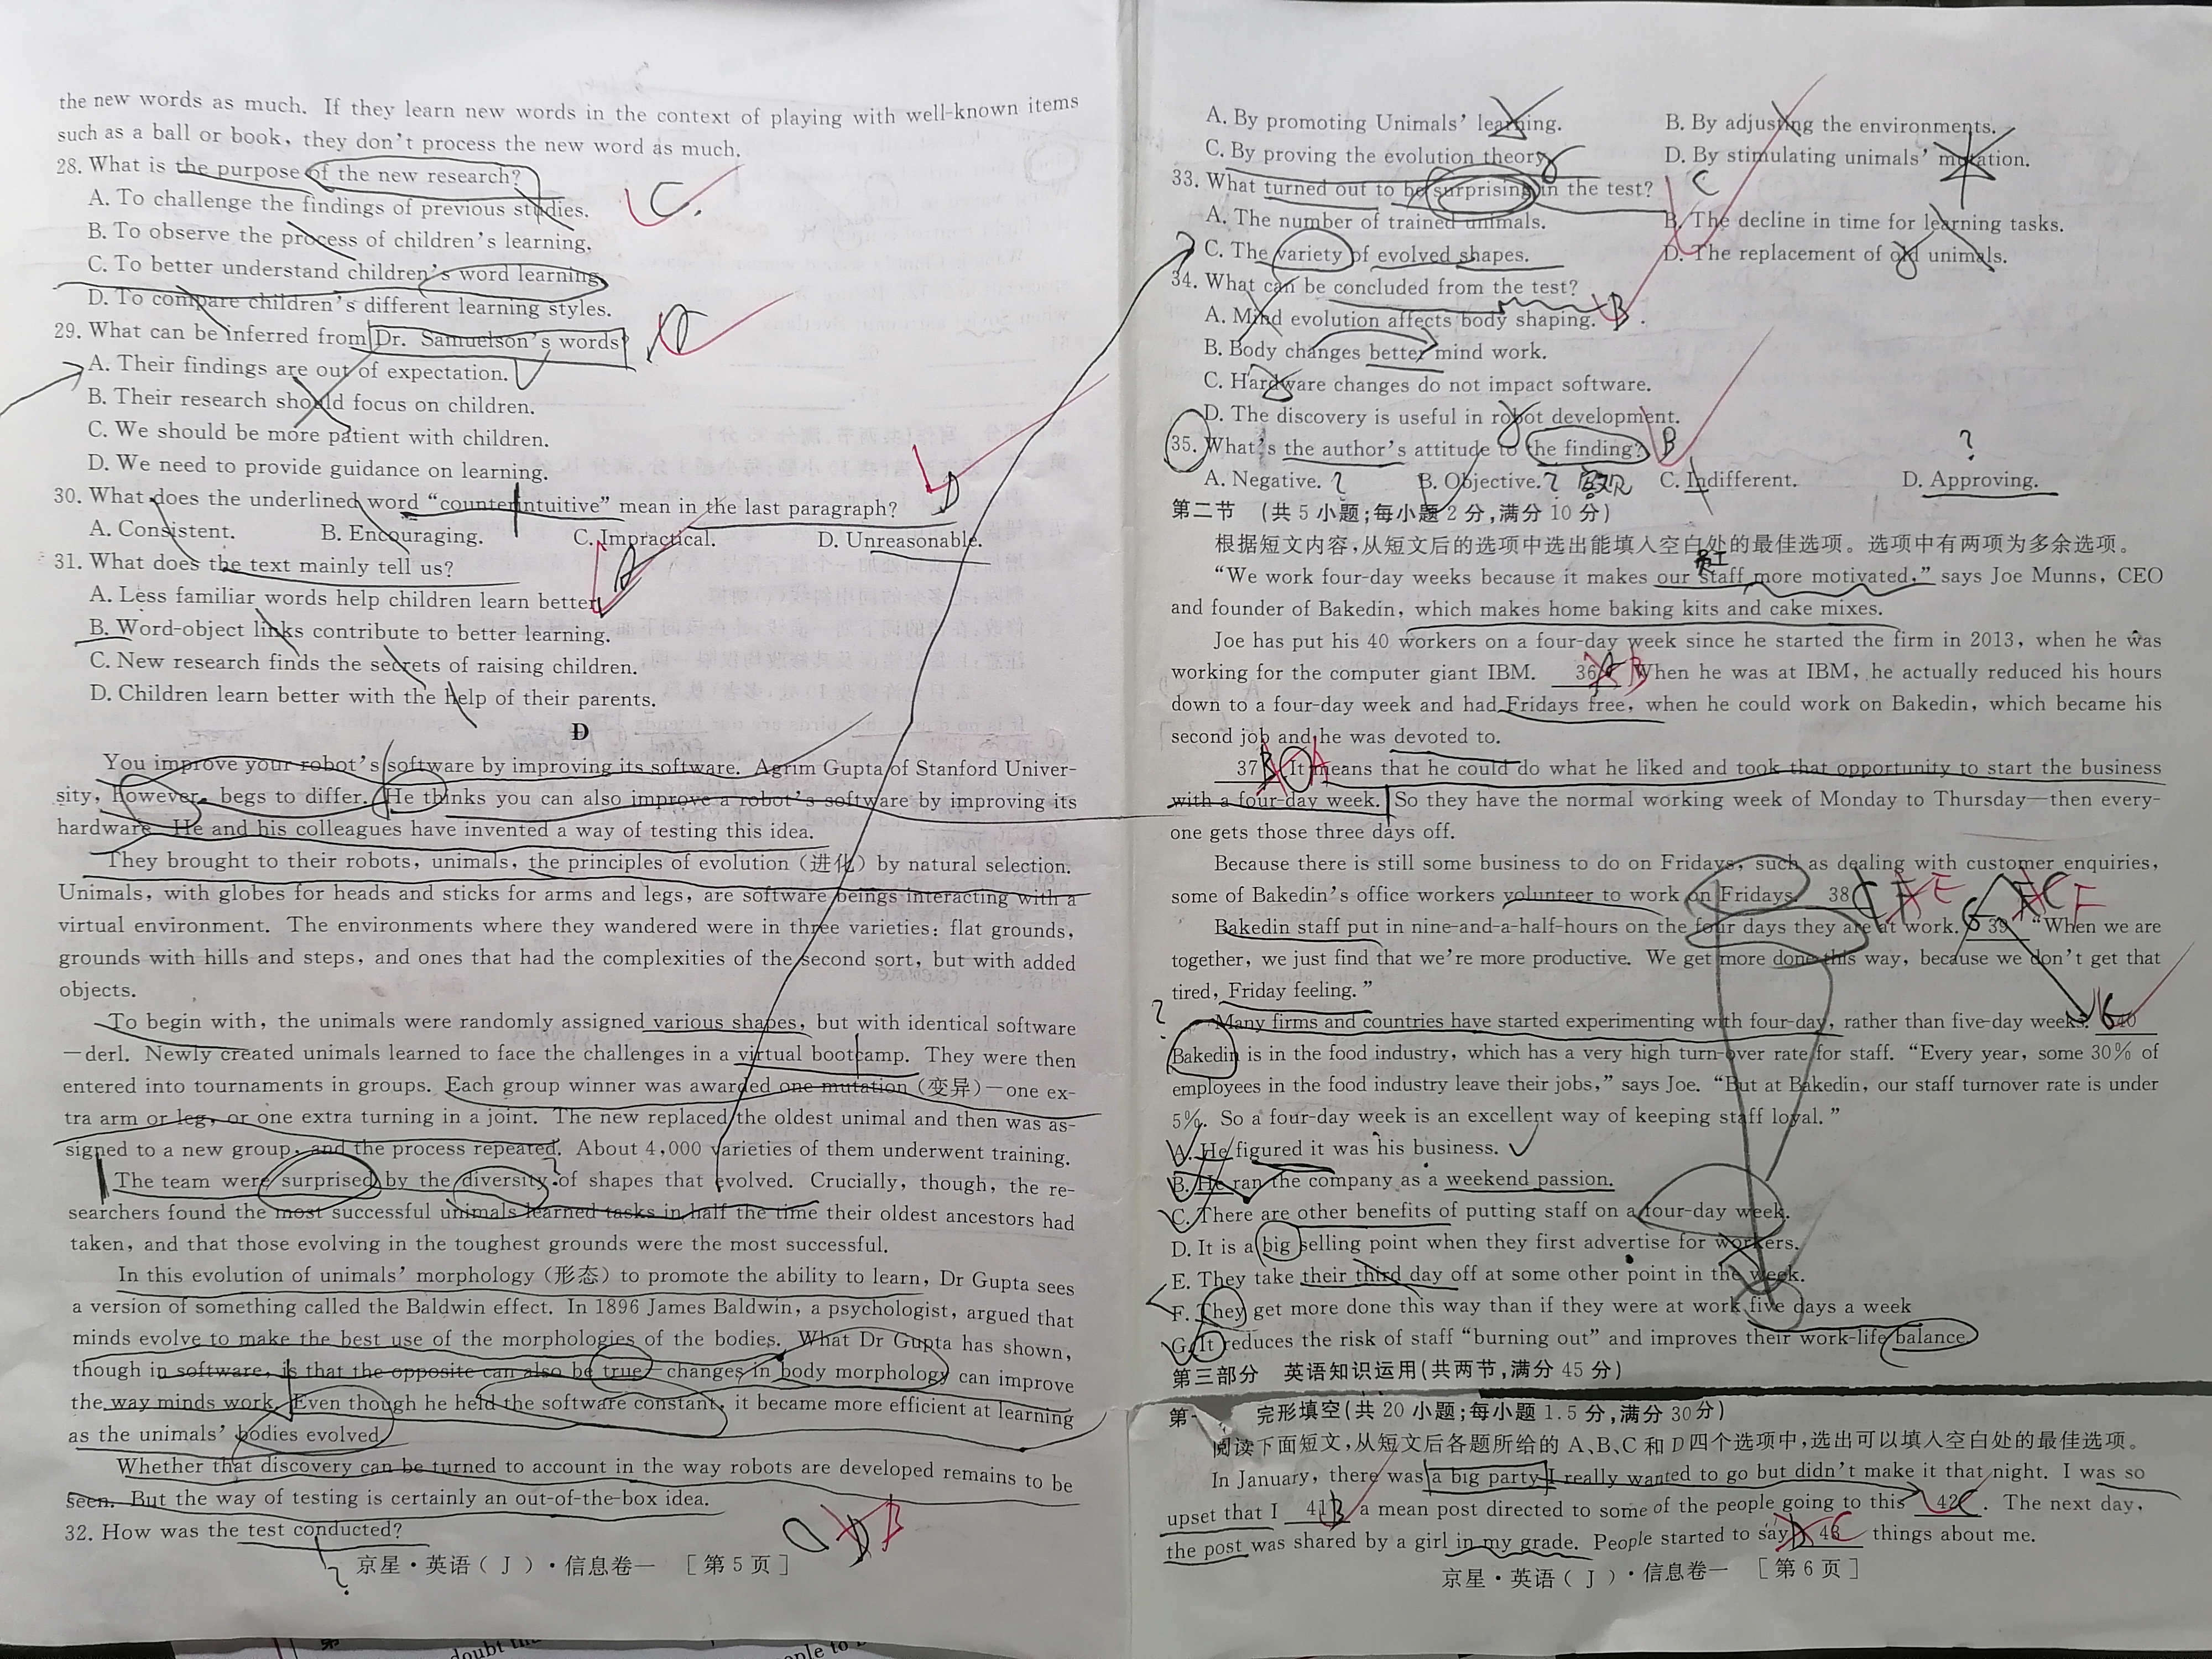 the new words as much. If they learn new words in the context of playing with well-known items
such as a ball or book, they don't process the new word as much.
28. What is the purpose of the new research?
C.
A. To challenge the findings of previous studies.
B. To observe the process of children's learning.
C. To better understand children's word learning.
D. To compare children's different learning styles.
29. What can be inferred from Dr. Samuelson's words?
A. Their findings are out of expectation.
B. Their research should focus on children.
C. We should be more patient with children.
D. We need to provide guidance on learning.
30. What does the underlined word “counterintuitive” mean in the last paragraph?
D
A. Consistent. B. Encouraging. C. Impractical. D. Unreasonable.
31. What does the text mainly tell us?
A
A. Less familiar words help children learn better.
B. Word-object links contribute to better learning.
C. New research finds the secrets of raising children.
D. Children learn better with the help of their parents.
D
You improve your robot's software by improving its software. Agrim Gupta of Stanford Univer-
sity, however, begs to differ. He thinks you can also improve a robot's software by improving its
hardware. He and his colleagues have invented a way of testing this idea.
They brought to their robots, unimals, the principles of evolution (进化) by natural selection.
Unimals, with globes for heads and sticks for arms and legs, are software beings interacting with a
virtual environment. The environments where they wandered were in three varieties: flat grounds,
grounds with hills and steps, and ones that had the complexities of the second sort, but with added
objects.
To begin with, the unimals were randomly assigned various shapes, but with identical software
—derl. Newly created unimals learned to face the challenges in a virtual bootcamp. They were then
entered into tournaments in groups. Each group winner was awarded one mutation (变异)—one ex-
tra arm or leg, or one extra turning in a joint. The new replaced the oldest unimal and then was as-
signed to a new group, and the process repeated. About 4,000 varieties of them underwent training.
The team were surprised by the diversity of shapes that evolved. Crucially, though, the re-
searchers found the most successful unimals learned tasks in half the time their oldest ancestors had
taken, and that those evolving in the toughest grounds were the most successful.
In this evolution of unimals' morphology (形态) to promote the ability to learn, Dr Gupta sees
a version of something called the Baldwin effect. In 1896 James Baldwin, a psychologist, argued that
minds evolve to make the best use of the morphologies of the bodies. What Dr Gupta has shown,
though in software, is that the opposite can also be true—changes in body morphology can improve
the way minds work. Even though he held the software constant, it became more efficient at learning
as the unimals' bodies evolved.
Whether that discovery can be turned to account in the way robots are developed remains to be
seen. But the way of testing is certainly an out-of-the-box idea.
32. How was the test conducted?
D B
?
京星·英语(J)·信息卷一 [第5页]
A. By promoting Unimals' learning. B. By adjusting the environments.
C. By proving the evolution theory. D. By stimulating unimals' mutation.
33. What turned out to be surprising in the test?
C
A. The number of trained unimals. B. The decline in time for learning tasks.
C. The variety of evolved shapes. D. The replacement of old unimals.
34. What can be concluded from the test?
B
A. Mind evolution affects body shaping.
B. Body changes better mind work.
C. Hardware changes do not impact software.
D. The discovery is useful in robot development.
35. What's the author's attitude to the finding?
B ?
A. Negative. ? B. Objective. ? 客观 C. Indifferent. D. Approving.
第二节 (共5小题;每小题2分,满分10分)
根据短文内容,从短文后的选项中选出能填入空白处的最佳选项。选项中有两项为多余选项。
员工
“We work four-day weeks because it makes our staff more motivated,” says Joe Munns, CEO
and founder of Bakedin, which makes home baking kits and cake mixes.
Joe has put his 40 workers on a four-day week since he started the firm in 2013, when he was
working for the computer giant IBM. 36 B When he was at IBM, he actually reduced his hours
down to a four-day week and had Fridays free, when he could work on Bakedin, which became his
second job and he was devoted to.
37 B A It means that he could do what he liked and took that opportunity to start the business
with a four-day week. So they have the normal working week of Monday to Thursday—then every-
one gets those three days off.
Because there is still some business to do on Fridays, such as dealing with customer enquiries,
some of Bakedin's office workers volunteer to work on Fridays. 38 C F E
Bakedin staff put in nine-and-a-half-hours on the four days they are at work. G 39 C F “When we are
together, we just find that we're more productive. We get more done this way, because we don't get that
tired, Friday feeling.”
?
Many firms and countries have started experimenting with four-day, rather than five-day weeks. G 40
Bakedin is in the food industry, which has a very high turn-over rate for staff. “Every year, some 30% of
employees in the food industry leave their jobs,” says Joe. “But at Bakedin, our staff turnover rate is under
5%. So a four-day week is an excellent way of keeping staff loyal.”
A. He figured it was his business.
B. He ran the company as a weekend passion.
C. There are other benefits of putting staff on a four-day week.
D. It is a big selling point when they first advertise for workers.
E. They take their third day off at some other point in the week.
F. They get more done this way than if they were at work five days a week
G. It reduces the risk of staff “burning out” and improves their work-life balance.
第三部分 英语知识运用(共两节,满分45分)
第一 完形填空(共20小题;每小题1.5分,满分30分)
阅读下面短文,从短文后各题所给的A、B、C和D四个选项中,选出可以填入空白处的最佳选项。
In January, there was a big party I really wanted to go but didn't make it that night. I was so
upset that I 41 B a mean post directed to some of the people going to this 42 C. The next day,
the post was shared by a girl in my grade. People started to say 43 C things about me.
京星·英语(J)·信息卷一 [第6页]